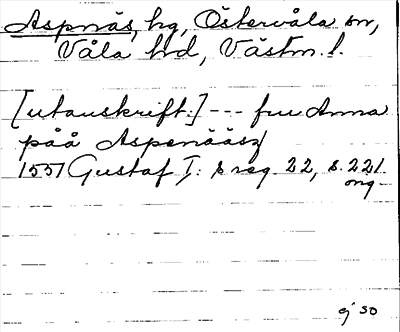 Aspnäs, hg, Östervåla sn,
Våla hd, Västm. l.
[utanskrift:] --- fru Anna
påå Aspenääsz
1551 Gustaf I: s reg. 22, s. 221.
orig.
ej SO